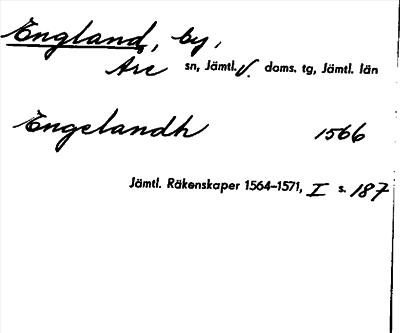 England, by,
Are sn, Jämtl. V. doms. tg, Jämtl. län
Engelandh 1566
Jämtl. Räkenskaper 1564–1571, I s. 187